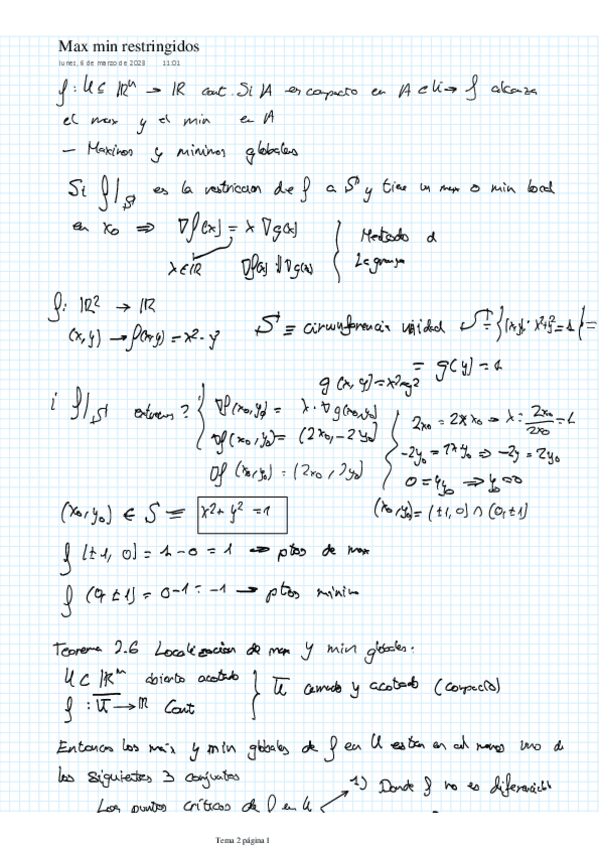 Max min restringidos
lunes, 6 de marzo de 2023 11:01
f: U ⊆ ℝⁿ → ℝ cont. Si A es compacto en A f alcanza
el max y el min en A
— Maximos y minimos globales
Si f|S es la restriccion de f a S y tiene un max o min local
en x₀ ⇒ ∇f(x) = λ ∇g(x) Metodo d
λ ∈ ℝ ∇f(x) ∥ ∇g(x) Lagrange
f: ℝ² → ℝ
(x,y) → f(x,y) = x² - y² S ≡ circunferencia unidad S = {(x,y): x²+y² = 1} =
g(x,y) = x²+y² = g(y) = 1
¿ f|S extremos? ∇f(x₀,y₀) = λ · ∇g(x₀,y₀) 2x₀ = 2λx₀ → λ = 2x₀/2x₀ = 1
∇f(x₀,y₀) = (2x₀, -2y₀) -2y₀ = 2λy₀ ⇒ -2y = 2y₀
(x₀,y₀) = (2x₀, 2y₀) 0 = 4y₀ ⇒ y₀ = 0
(x₀,y₀) ∈ S = x² + y² = 1 (x₀,y₀) = (±1, 0) ∩ (0, ±1)
f (±1, 0) = 1 - 0 = 1 → ptos de max
f (0, ±1) = 0 - 1 = -1 → ptos minim
Teorema 2.6 Localizacion de max y min globales:
U ⊂ ℝⁿ abierto acotado Ū cerrado y acotado (compacto)
f: Ū → ℝ Cont
Entonces los máx y min globales de f en U estan en al menos uno de
los siguientes 3 conjuntos
Los puntos críticos de f en U 1) Donde f no es diferenciable
Tema 2 página 1